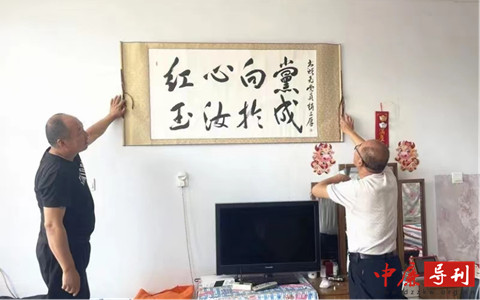 红心向黨
玉汝於成
中廉导刊